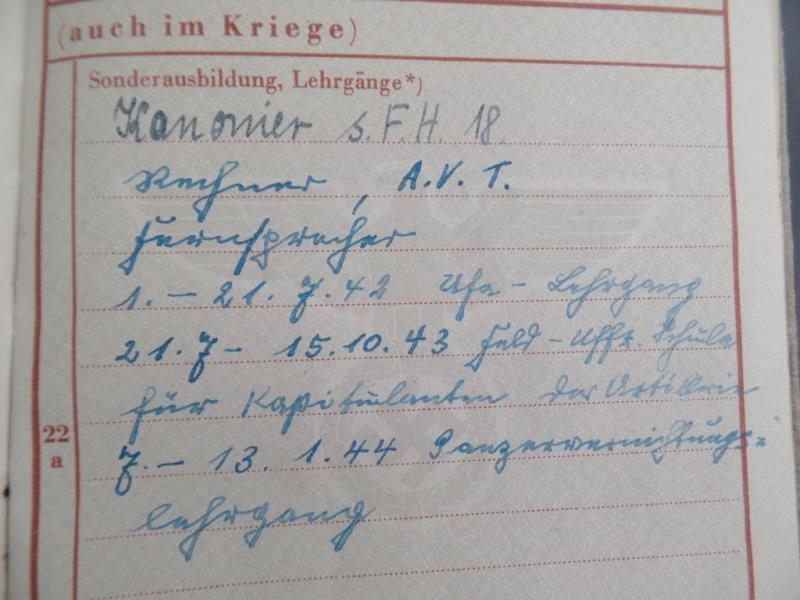 (auch im Kriege)
Sonderausbildung, Lehrgänge*)
Kanonier s.F.H. 18.
Rechner, A.V.T.
Fernsprecher
1. – 21. 7. 42 Ufa - Lehrgang
21. 7 – 15. 10. 43 Feld - Uffz. Schule
für Kapitulanten der Artillerie
22
a
7. – 13. 1. 44 Panzervernichtungs=
lehrgang